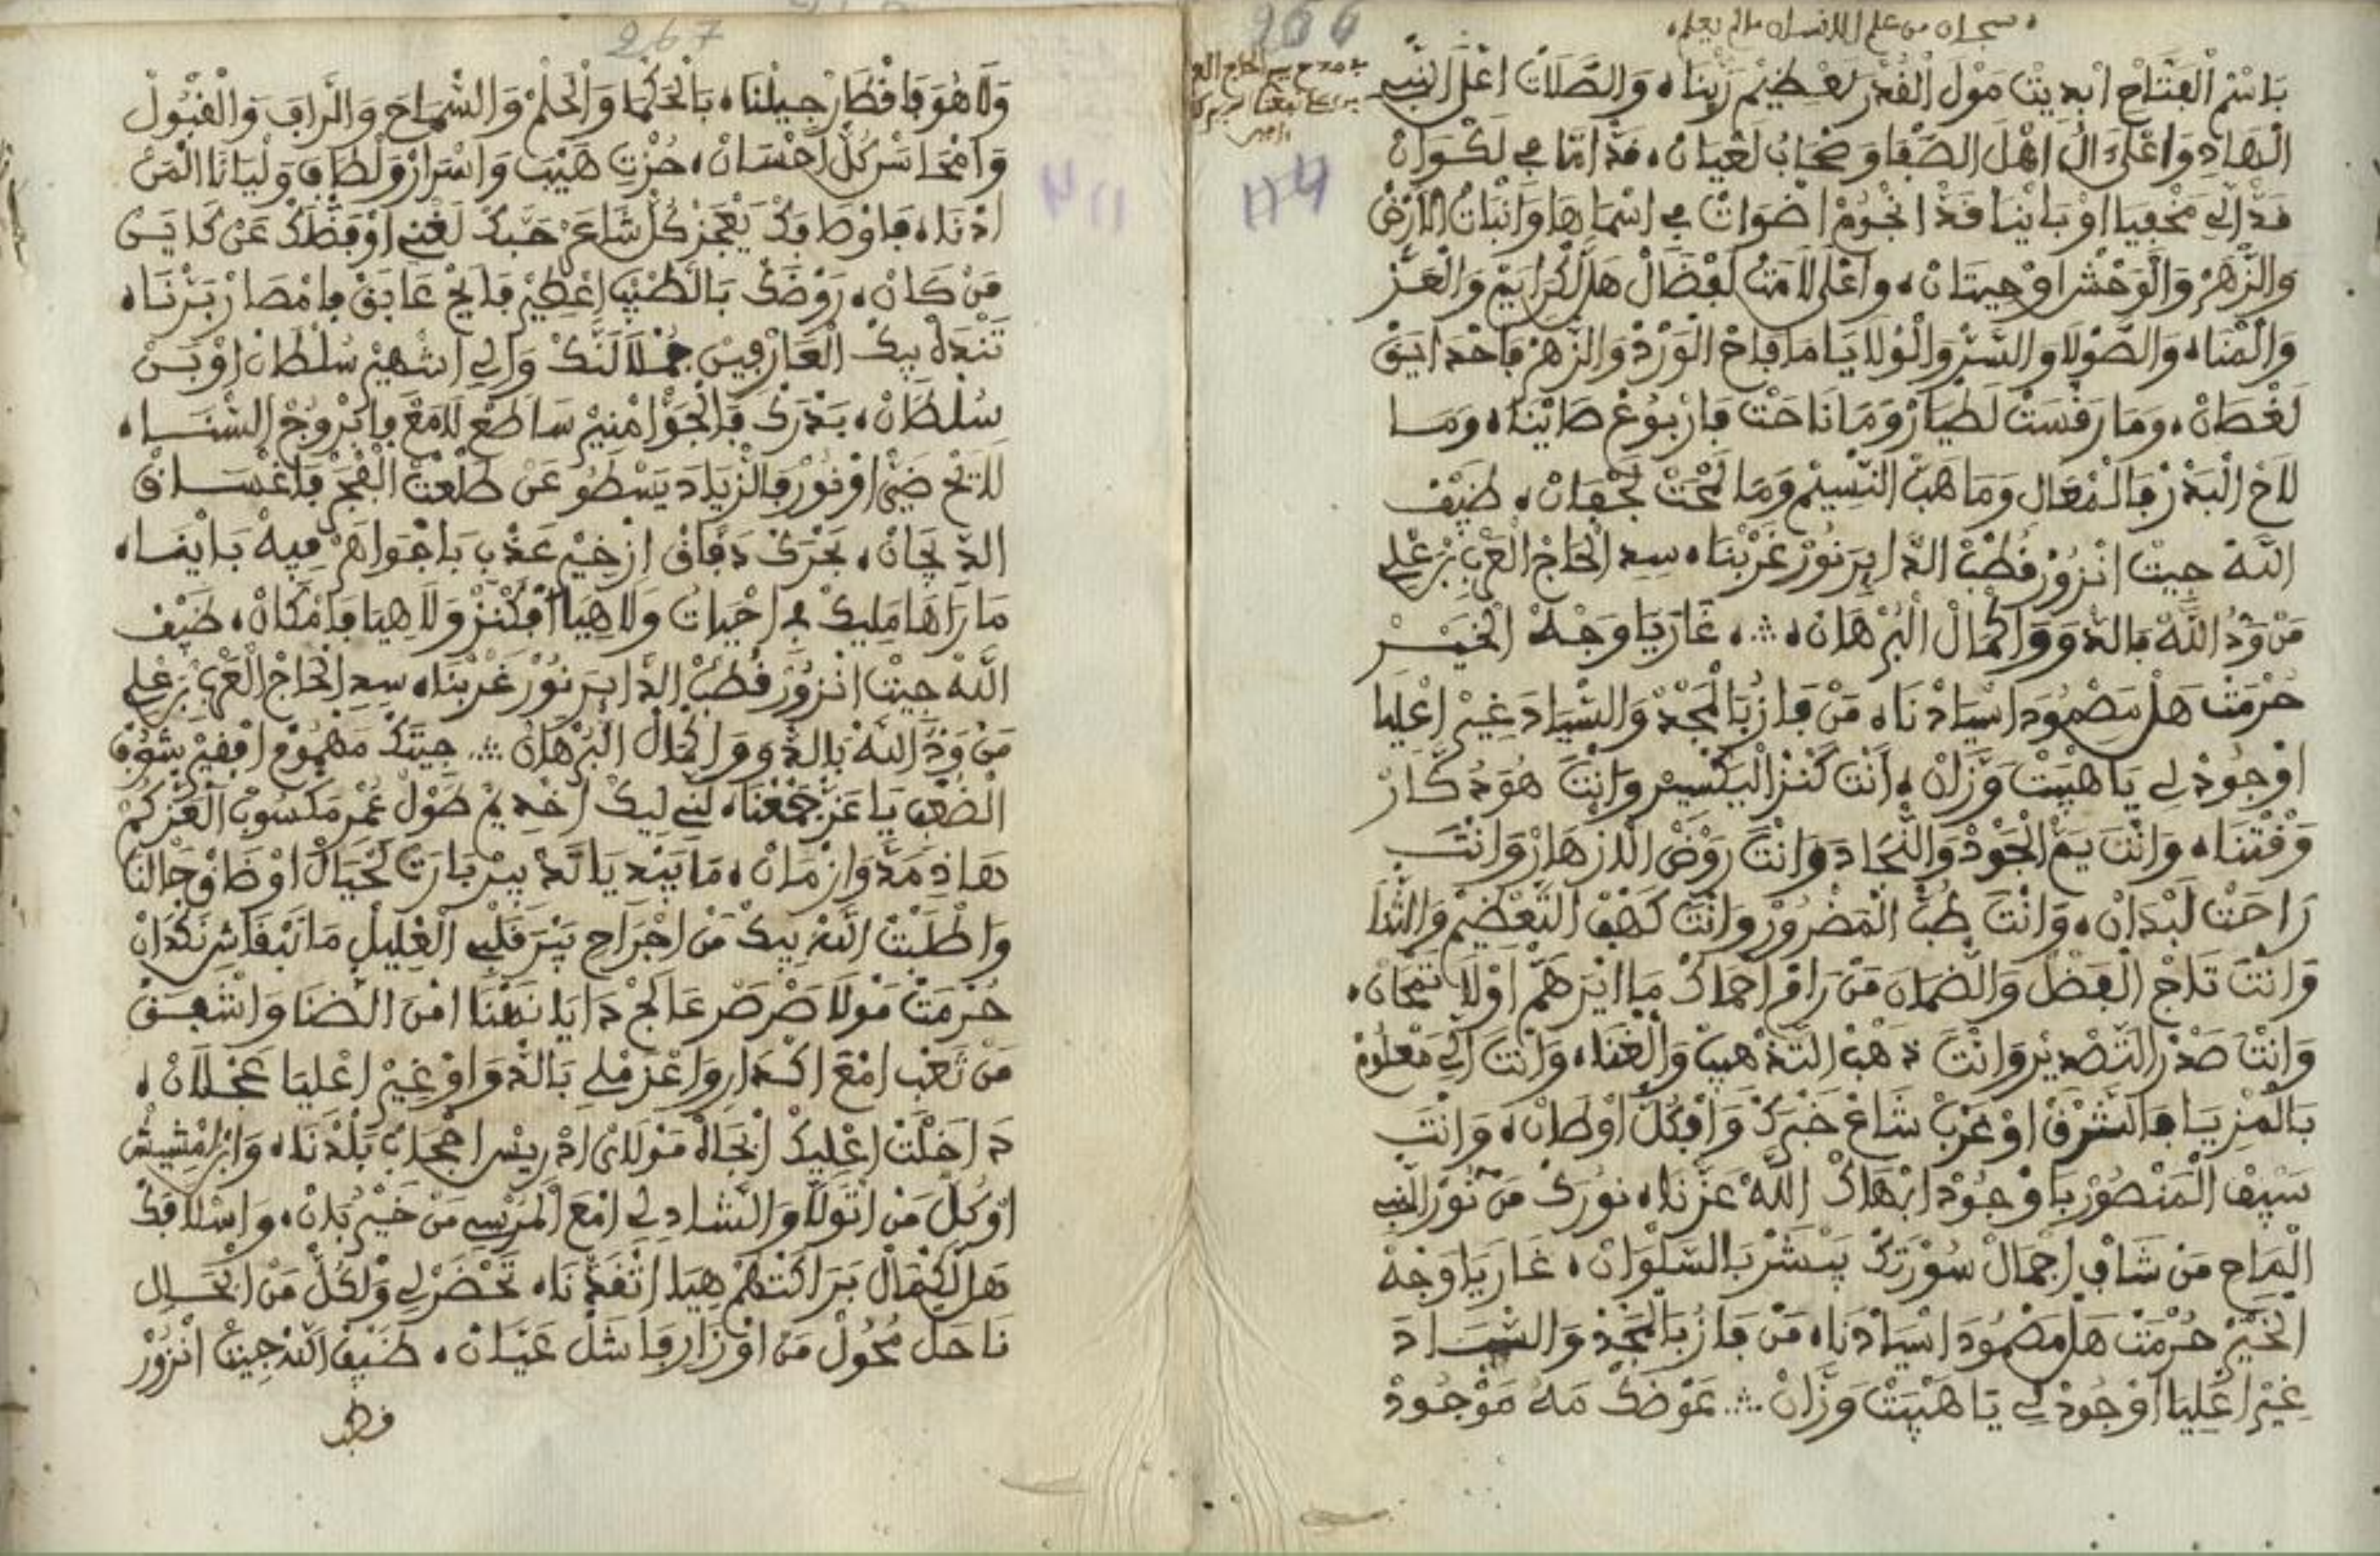 سبحان من علم الانسان ما لم يعلم
266
في مدح سيدي الحاج العربي
نفعنا الله ببركاته
ءامين
بَاسْمِ الْفَتَّاحْ ابْدِيتْ مَوْلَ الْقُدْرَ لَعْظِيمْ رَبْنَاه وَالصَّلَاتْ اعْلَى النَّبِي
الْهَادِ وَاعْلَى الْ اهْلَ الصَّفَا وَصْحَابُ لَعْيَانْ، قَدّ امَّا فِي لَكْوَانْ
قَدّ الِي مَخْفِيَا اوْ بَايْنَا قَدّ انْجُومْ اضْوَاتْ فِي اسْمَاهَا وَانْبَاتْ الَارْضْ
وَالزَّهْرْ وَالْوَحْشْ اوْ حِيتَانْ، وَاعْلَى لَامَتُ لَفْضَالْ هَلْ لَكْرَايَمْ وَالْعَزّ
وَالْهْنَاه وَالصُّولَا وَالسَّرّ وَالْوْلَايَا مَا فَاحْ الْوَرْدْ وَالزَّهْرْ فَاحْدَايَقْ
لَغْصَانْ، وَمَا رَقْسَتْ لَطْيَارْ وَمَا نَاحَتْ فَارْبُوعْ صَايْنَاه وَمَا
لَاحْ الْبَدْرْ فَالْمْعَالِ وَمَا هَبّ النّْسِيمْ وَمَا لَمْحَتْ لَجْفَانْ، ضَيْفْ
اللَّهْ جِيتْ انْزُورْ قُطْبْ الدَّايِرَ نُورْ غَرْبْنَاه سِيدِ الْحَاجْ الْعَرْبِي بْنْ عْلِي
مَنْ وَدُّ اللَّهْ بَالدّْوَا وَاكْمَالْ الْبُرْهَانْ ؞ غَارَ يَا وَجْهْ الْخَيْرْ
حُرْمَتْ هَلْ مَصْمُودَ اسْيَادْنَاه مَنْ فَازُ بَالْمَجْدْ وَالسّْيَادَ غِيرْ اعْلِيَا
اوْجُودْ لِي يَا هَيْبَتْ وَزَّانْ، أَنْتَ كَنْزَ الْيَكْسِيرْ وَانْتَ هُوَ دْكَارْ
وَقْتْنَاه وَانْتَ يَمّ الْجُودْ وَالنّْجَادَ وَانْتَ رَوْضْ الَازْهَارْ وَانْتَ
رَاحَتْ لَبْدَانْ، وَانْتَ طُبّ الْمَضْرُورْ وَانْتَ كَهْفْ التَّعْظِيمْ وَالثّْنَا
وَانْتَ تَاجْ الْفَضْلْ وَالضّْمَانَ مَنْ رَامْ احْمَاكْ مَا ايْرَ هَمّ اوْلَا تَمْحَانْ،
وَانْتَ صَدْرْ التَّصْدِيرْ وَانْتَ دْهَبْ التَّدْهِيبْ وَالْغْنَاه وَانْتَ الِي مَعْلُومْ
بَالْمْزِيَا فَالشَّرْقْ اوْ غَرْبْ شَاعْ خَبْرَكْ وَافْكُلّ اوْطَانْ، وَانْتَ
سَيْفْ الْمَنْصُورْ بَاوْجُودْ ابْهَاكْ اللَّهْ عَزّْنَاه نُورَكْ مَنْ نُورْ النَّبِي
الْمَاحِ مَنْ شَافْ اجْمَالْ سُورْتَكْ يَبْشَرْ بَالسَّلْوَانْ، غَارَ يَا وَجْهْ
الْخَيْرْ حُرْمَتْ هَلْ مَصْمُودَ اسْيَادْنَاه مَنْ فَازُ بَالْمَجْدْ وَالسّْيَادَ
غِيرْ اعْلِيَا اوْجُودْ لِي يَا هَيْبَتْ وَزَّانْ ؞ عَوْضَكْ مَهُ مَوْجُودْ
267
وَلَا هُوَ فَاقْطَارْ جِيلْنَاه بَالْحَكْمَا وَالْحَلْمْ وَالسّْمَاحَ وَالرَّافَ وَالْقْبُولْ
وَامْحَاسَنْ كُلّ احْسَانْ، حُزْتِ هَيْبَ وَاسْرَارْ وَلْطَافَ وَلْيَانَا الْمَنْ
ادْنَاه فَاوْصَافَكْ يَعْجَزْ كُلّ شَاعَرْ حَبَّكْ لَغْنِي اوْ فَضْلَكْ عَنْ كَايَنْ
مَنْ كَانْ، رَوْضَكْ بَالطّْيَبْ اعْطِيرْ فَايَحْ عَابَقْ فِامْصَارْ بَرّْنَاه
تَنْدَهْ بِيكْ الْعَارْفِينْ جُمْلَا لَنَّكْ وَالِي اشْهِيرْ سُلْطَانْ اوْ بَنْ
سُلْطَانْ، بَدْرَكْ فَالْجَوّ امْنِيرْ سَاطَعْ لَامَعْ فِابْرُوجْ السّْنَاه
لَايَحْ ضَيّ اوْ نُورْ فَالزّْيَادَ يَسْطُو عَنْ طَلْعَتْ الْفْجَرْ فَاغْسَاقْ
الدِّيجَانْ، بَحْرَكْ دَفَّاقْ ازْخِيرْ عَذْبِ بَاجْوَاهَرْ فِيهْ بَايْنَاه
مَا رَاهَا مَلِيكْ فِي احْيَاتُ وَلَا هِيَا افْكَنْزْ وَلَا هِيَا فَامْكَانْ، ضَيْفْ
اللَّهْ جِيتْ انْزُورْ قُطْبْ الدَّايِرَ نُورْ غَرْبْنَاه سِيدِ الْحَاجْ الْعَرْبِي بْنْ عْلِي
مَنْ وَدُّ اللَّهْ بَالدّْوَا وَاكْمَالْ الْبُرْهَانْ ؞ جِيتَكْ مَهْمُومْ افْقِيرْ بَثُوبْ
الضُّعْفِ يَا عَزّ جَمْعْنَاه لَنِّي لِيكْ اخْدِيمْ طُولْ عُمْرِ مَكْسُوبْ الْعَزّكُمْ
هَاذِ مَدَّ وَازْمَانْ، مَا بِيَدِّ يَا لَدّ بِيرْ بَارَتْ لَحْيَالْ اوْ ضَاقْ حَالْنَا
وَاطْلَبْتْ اللَّهْ بِيكْ مَنْ اجْرَاحِ يَبْرَ قَلْبِي الْعْلِيلْ مَا نَبْقَاشِ نَكْدَانْ
حُرْمَتْ مَوْلَا صَرْصَرْ عَالَجْ دَايَا نَهْنَا امْنَ الضّْنَا وَاشْفِقْ
مَنْ تَعْبِ امْعَ اكْدَارِ وَاعْزَمْلِي بَالدّْوَا اوْ غِيرْ اعْلِيَا عَجْلَانْ،
دَاخَلْتْ اعْلِيكْ ابْجَاهْ مَوْلَايْ ادْرِيسْ احْجَابْ بَلْدْنَاه وَابْنْ امْشِيشْ
اوْ كُلّ مَنْ اتْوَلَّا وَالشَّادِلِي امْعَ الْمَرْسِي مَنْ خَيْرُ بَانْ، وَاسْلَافَكْ
هَلْ لَكْمَالْ بَرَاكَتْهُمْ هِيَا اتْنَقَدْنَاه تَحْضَرْ لِي وَلْكُلّ مَنْ انْحَالِ
نَاحَلْ مَحُولْ مَنْ اوْزَارِ فَاشَلْ عَيَّانْ، ضَيْفْ اللَّهْ جِيتْ انْزُورْ
قطب